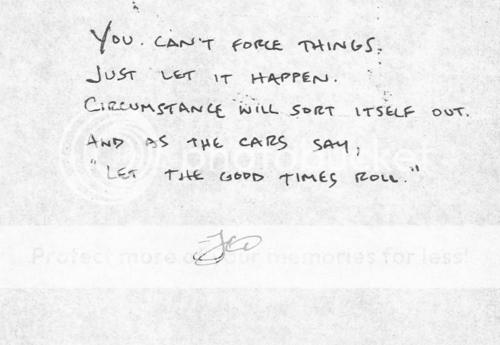 YOU CAN'T FORCE THINGS.
JUST LET IT HAPPEN.
CIRCUMSTANCE WILL SORT ITSELF OUT.
AND AS THE CARS SAY,
"LET THE GOOD TIMES ROLL."
photobucket
Protect more of your memories for less!